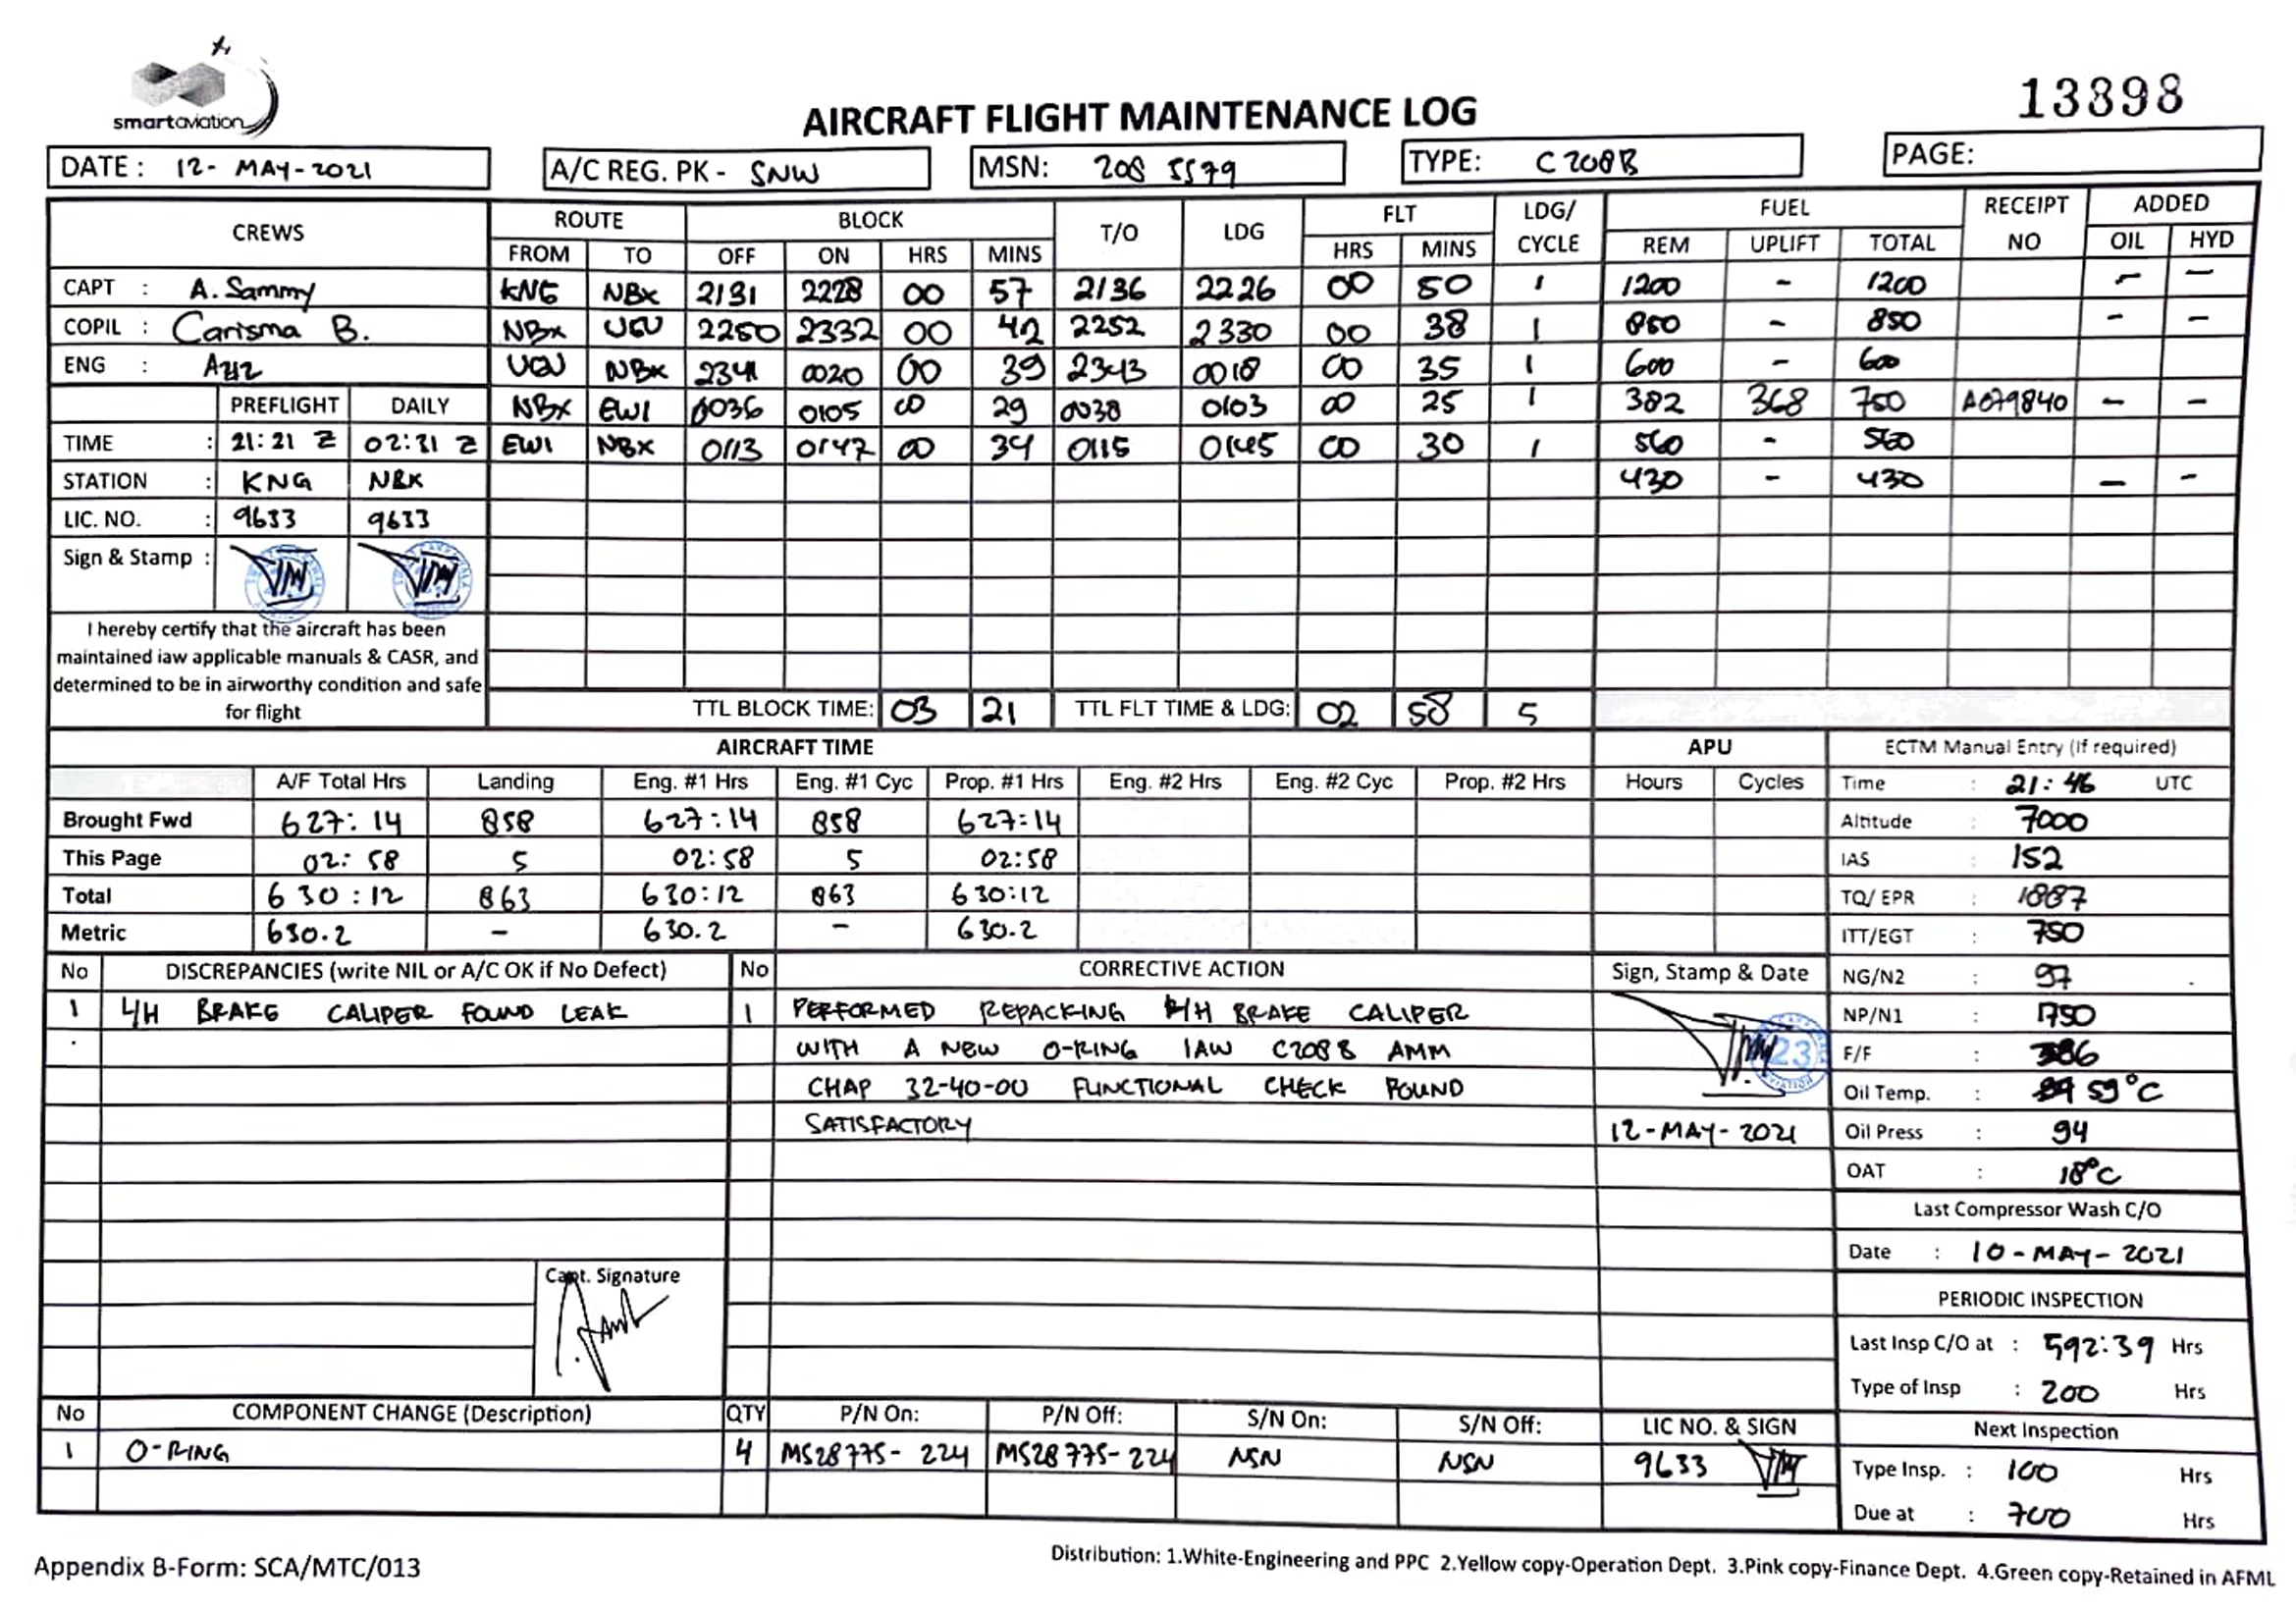 smartaviation
13898
AIRCRAFT FLIGHT MAINTENANCE LOG
DATE : 12- MAY-2021
A/C REG. PK - SNW
MSN: 208 5579
TYPE: C208B
PAGE:
CREWS ROUTE BLOCK T/O LDG FLT LDG/ CYCLE FUEL RECEIPT NO ADDED
FROM TO OFF ON HRS MINS HRS MINS REM UPLIFT TOTAL OIL HYD
CAPT : A. Sammy KNG NBX 2131 2228 00 57 2136 2226 00 50 1 1200 - 1200 - -
COPIL : Carisma B. NBX UGU 2250 2332 00 42 2252 2330 00 38 1 850 - 850 - -
ENG : Aziz UGU NBX 2341 0020 00 39 2343 0018 00 35 1 600 - 600
PREFLIGHT DAILY NBX EWI 0036 0105 00 29 0038 0103 00 25 1 382 368 750 A079840 - -
TIME : 21:21 Z 02:31 Z EWI NBX 0113 0147 00 34 0115 0145 00 30 1 560 - 560
STATION : KNG NBX 430 - 430 - -
LIC. NO. : 9633 9633
Sign & Stamp :
I hereby certify that the aircraft has been
maintained iaw applicable manuals & CASR, and
determined to be in airworthy condition and safe
for flight
TTL BLOCK TIME: 03 21 TTL FLT TIME & LDG: 02 58 5
AIRCRAFT TIME APU
A/F Total Hrs Landing Eng. #1 Hrs Eng. #1 Cyc Prop. #1 Hrs Eng. #2 Hrs Eng. #2 Cyc Prop. #2 Hrs Hours Cycles
Brought Fwd 627:14 858 627:14 858 627:14
This Page 02:58 5 02:58 5 02:58
Total 630:12 863 630:12 863 630:12
Metric 630.2 - 630.2 - 630.2
ECTM Manual Entry (If required)
Time : 21:46 UTC
Altitude : 7000
IAS : 152
TQ/ EPR : 1887
ITT/EGT : 750
NG/N2 : 97
NP/N1 : 1750
F/F : 386
Oil Temp. : 59°C
Oil Press : 94
OAT : 18°C
Last Compressor Wash C/O
Date : 10-MAY-2021
PERIODIC INSPECTION
Last Insp C/O at : 592:39 Hrs
Type of Insp : 200 Hrs
Next Inspection
Type Insp. : 100 Hrs
Due at : 700 Hrs
No DISCREPANCIES (write NIL or A/C OK if No Defect) No CORRECTIVE ACTION Sign, Stamp & Date
1 L/H BRAKE CALIPER FOUND LEAK 1 PERFORMED REPACKING /H BRAKE CALIPER
WITH A NEW O-RING IAW C208B AMM
CHAP 32-40-00 FUNCTIONAL CHECK FOUND
SATISFACTORY
23
12-MAY-2021
Capt. Signature
No COMPONENT CHANGE (Description) QTY P/N On: P/N Off: S/N On: S/N Off: LIC NO. & SIGN
1 O-RING 4 MS28775-224 MS28775-224 NSN NSN 9633
Appendix B-Form: SCA/MTC/013
Distribution: 1.White-Engineering and PPC 2.Yellow copy-Operation Dept. 3.Pink copy-Finance Dept. 4.Green copy-Retained in AFML